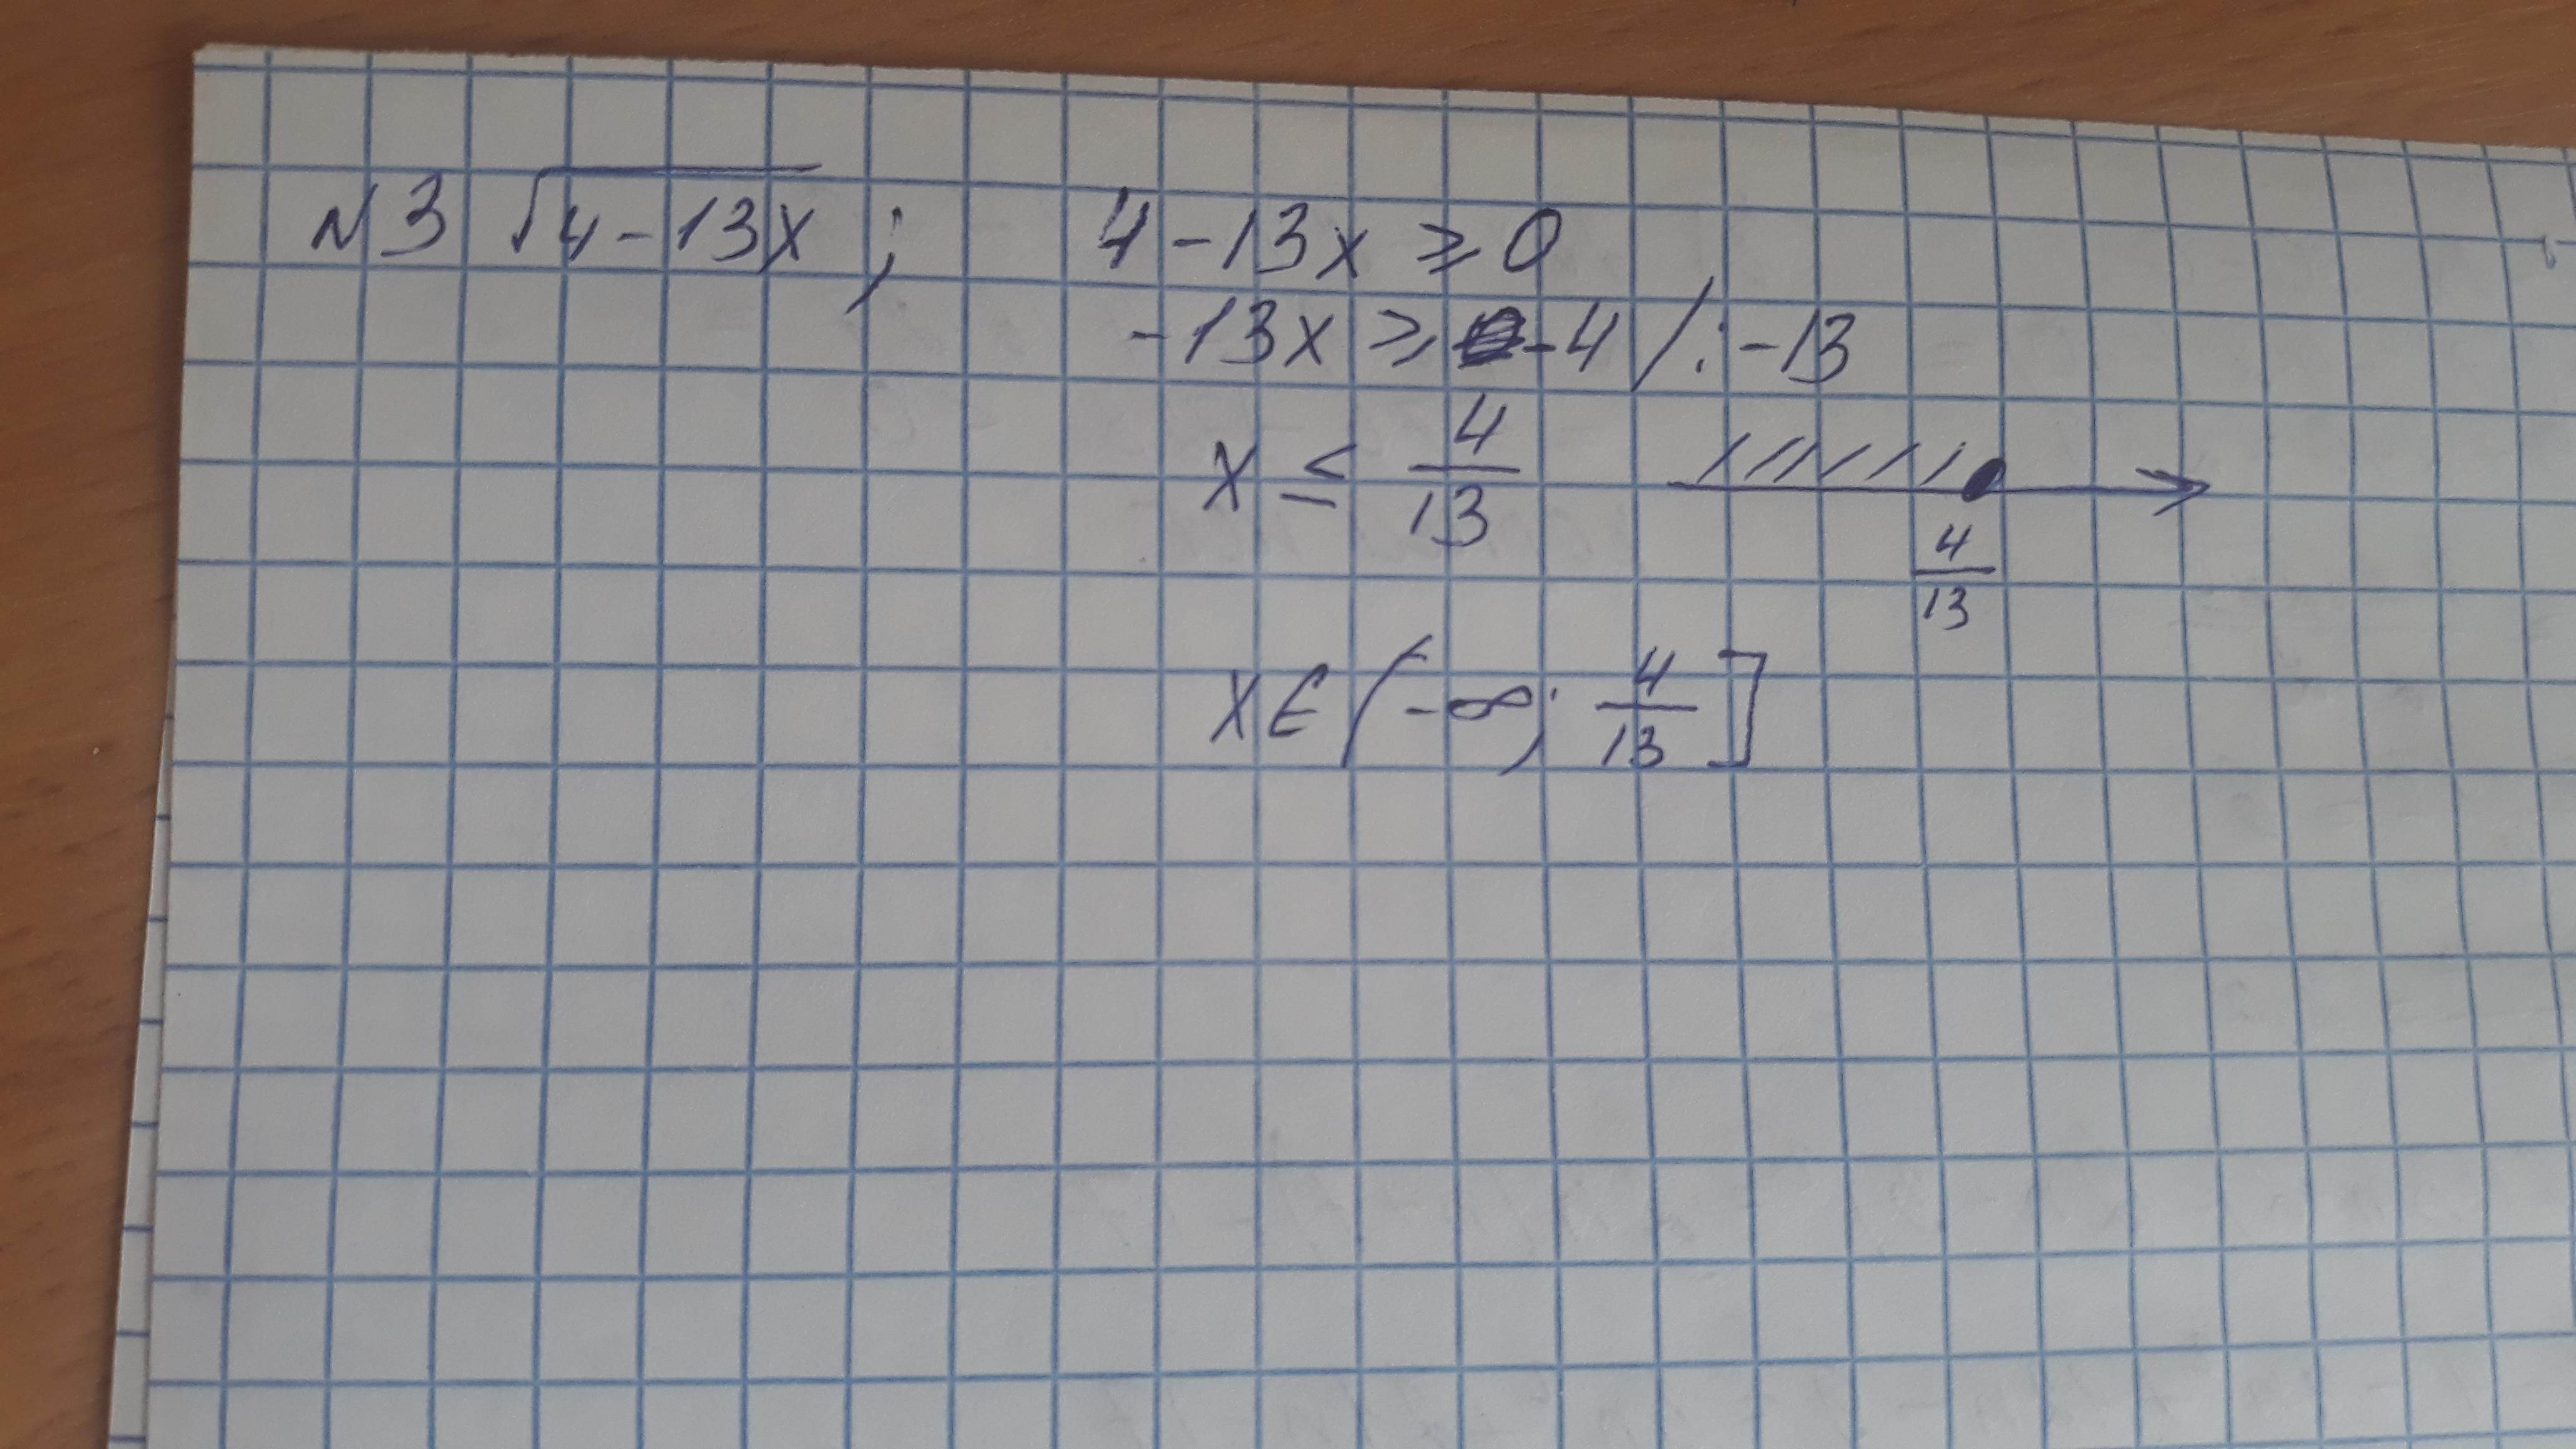 N3 √4-13x ; 4-13x ≥ 0
-13x ≥ -4 /:-13
x ≤ 4/13
4/13
x∈(-∞; 4/13]